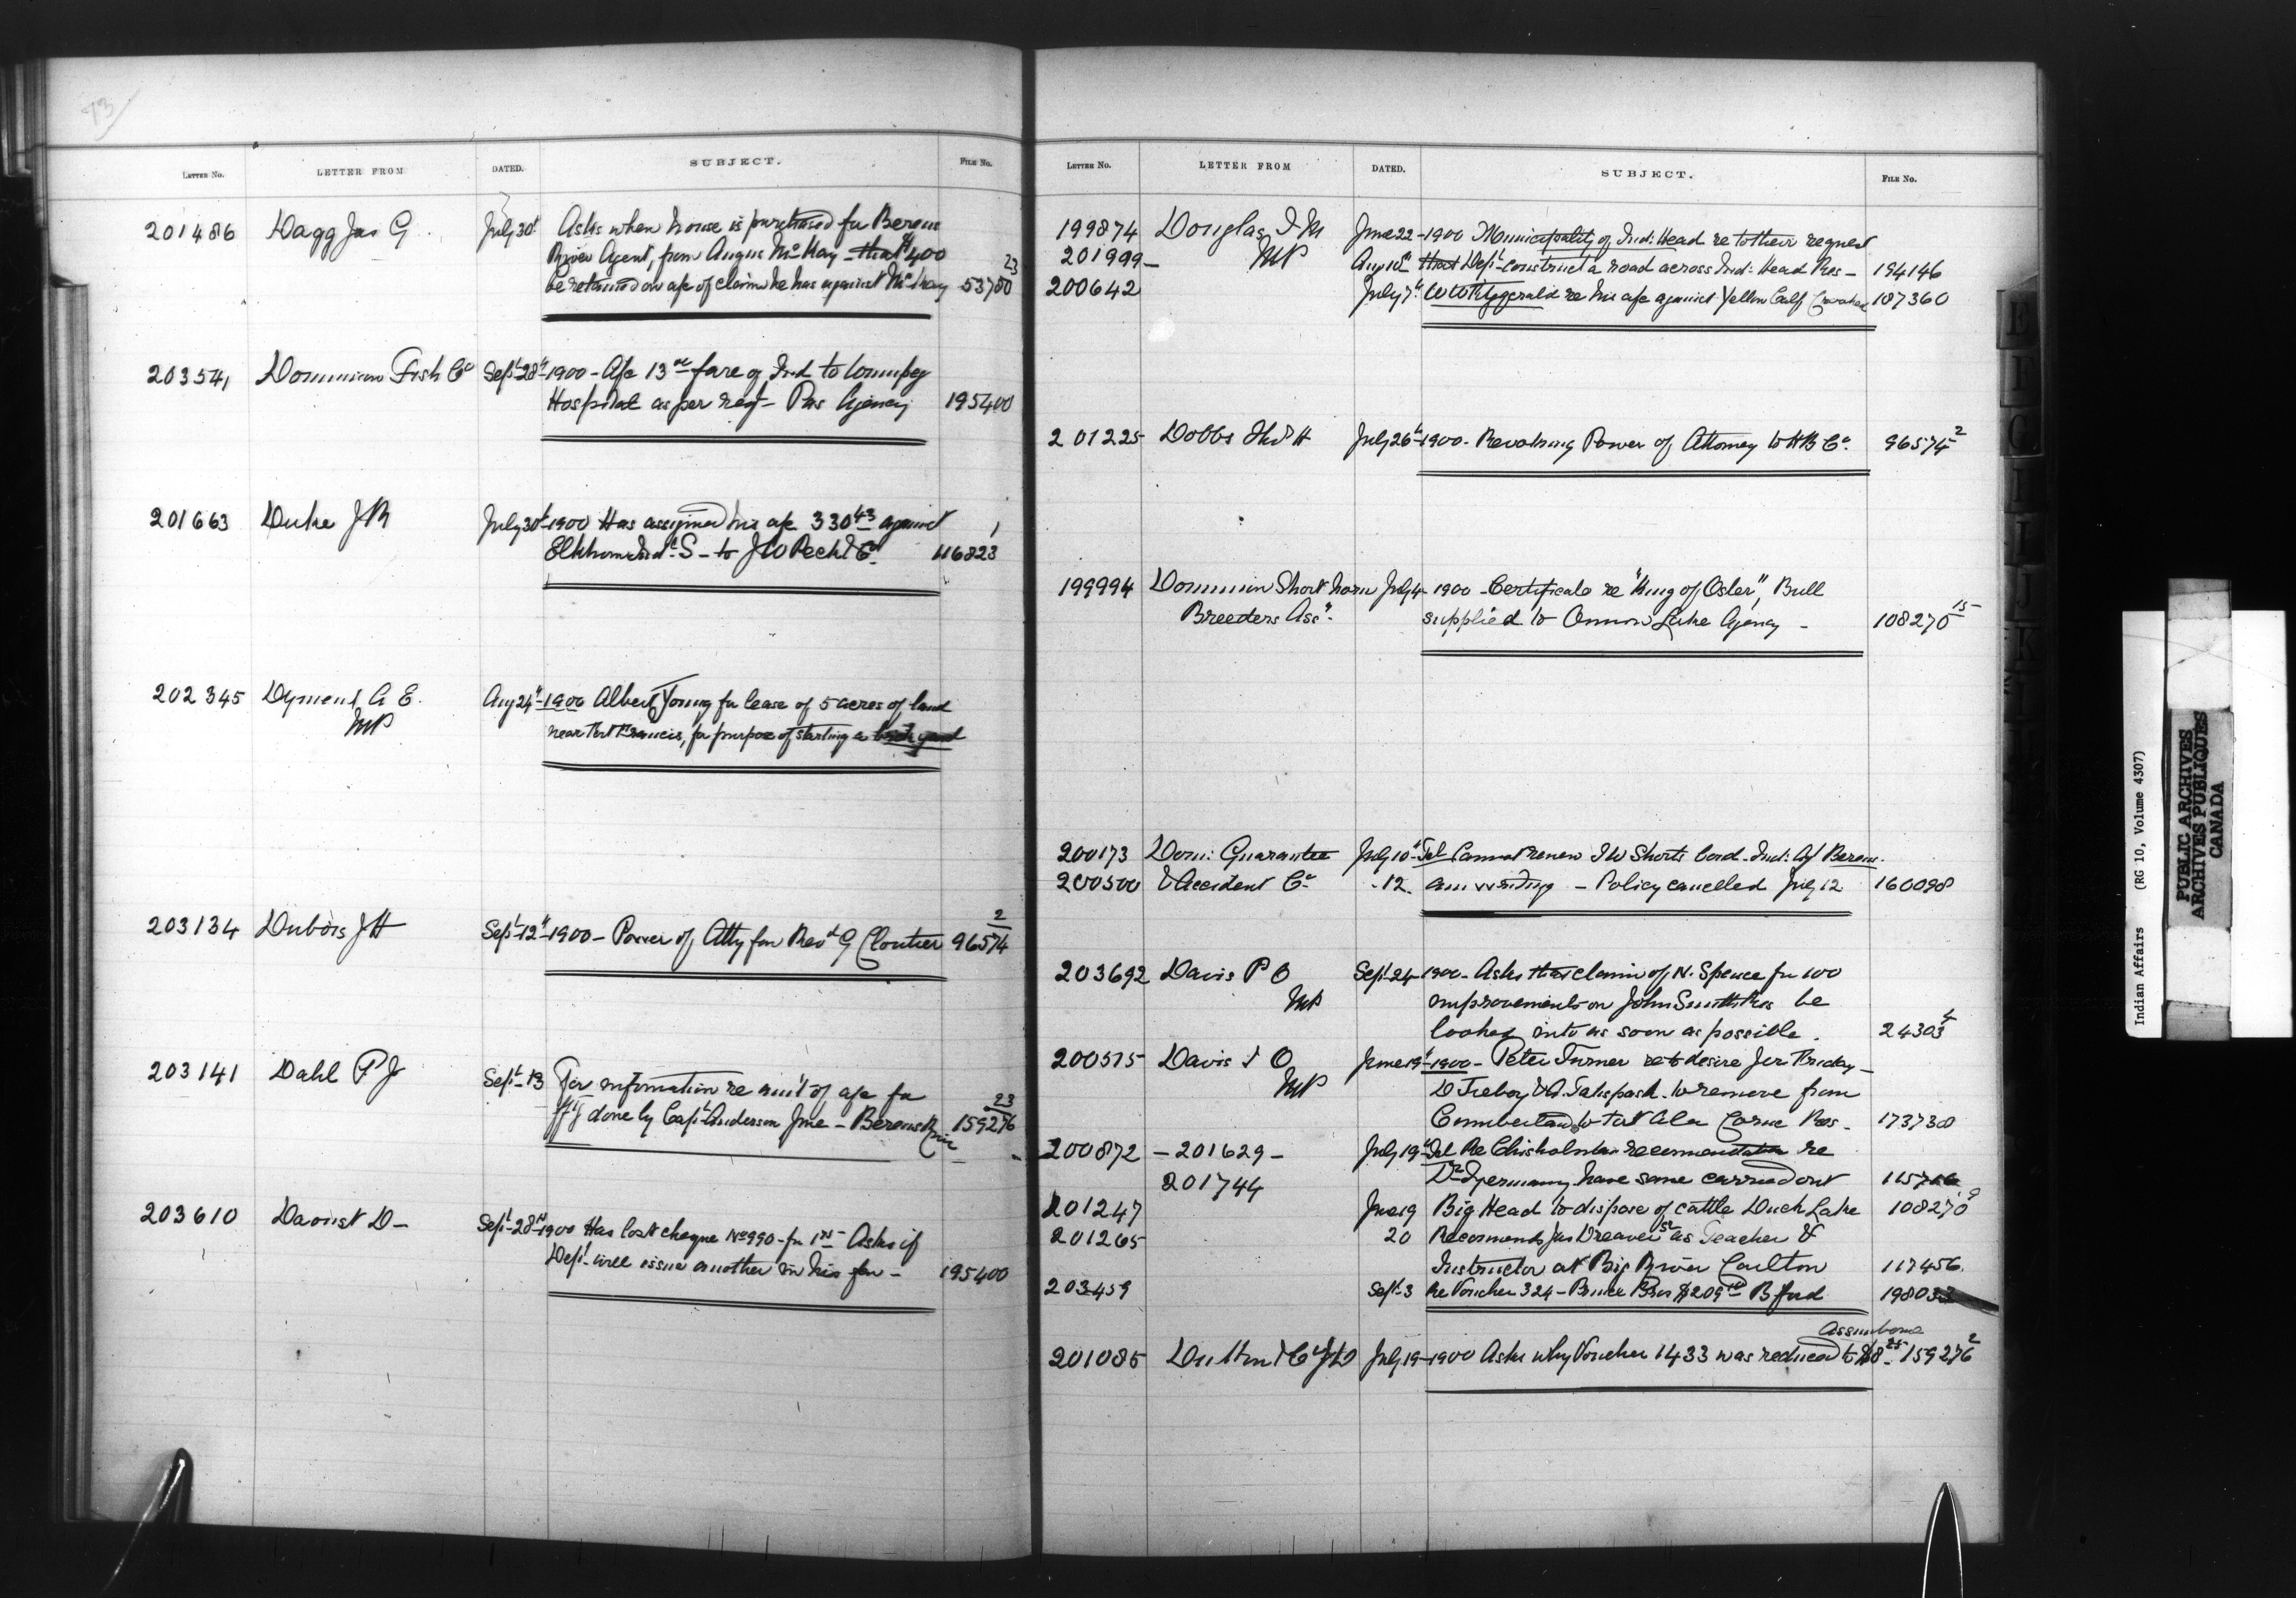 73
LETTER No. LETTER FROM DATED. SUBJECT. FILE No.
201486 Dagg Jas G July 30t Asks when house is purchased for Berens
River Agent, from Angus McKay that $400
be retained on a/c of claim he has against McKay 53780 23
203541 Dominion Fish Co Sept 28t 1900 - A/c 13 fare of Ind to Winnipeg
Hospital as per req - Pas Agency 195400
201663 Duke J R July 30t 1900 Has assigned his a/c 330 43 against
Elkhorn Ind. S - to J W Peck & Co 116823 1
202345 Dyment A E. Aug 24t 1900 Albert Young for lease of 5 acres of land
MP near Fort Francis, for purpose of starting a brick yard
203134 Dubois J H Sept 12t 1900 - Power of Atty for Revd G Cloutier 96574 2
203141 Dahl P J Sept 13 For information re am't of a/c for
done by Capt Anderson - Berens River 159276 23
203610 Daoust D - Sept 28t 1900 Has lost cheque No 990 - for Asks if
Dept will issue another in his fav - 195400
LETTER No. LETTER FROM DATED. SUBJECT. FILE No.
199874 Douglas J M June 22 - 1900 Municipality of Ind: Head re to their request
201999 - MP Aug 10t that Dept construct a road across Ind: Head Res - 194146
200642 July 7t W W Fitzgerald re his a/c against Yellow Calf Crooked 107360
201225 Dobbs H July 26t 1900 - Revoking Power of Attorney to HB Co. 96574 2
199994 Dominion Short horn July 4 - 1900 - Certificate re "King of Osler", Bull
Breeders Assn. supplied to Onion Lake Agency - 108270 15
200173 Dom: Guarantee July 10t Tel Cannot renew J W Shorts bond - Ind: Ag Berens.
200500 & Accident Co - 12. am writing - Policy cancelled July 12 160098
203692 Davis P O Sept 24 - 1900 - Asks that claim of N. Spence for 100
MP improvements on John Smiths Res be
looked into as soon as possible. 24303 4
200515 Davis T O June 19t 1900 - Peter Turner re to desire Jer Friday -
MP to remove from
Cumberland to Fort A la Corne Res - 173738
200872 - 201629 - July 19t Tel Re Chisholms recommendation re
201744 have same carried out
201247 June 19 Big Head to dispose of cattle Duck Lake 108270 9
201265 20 Recommends Jas Dreaver Sr as Teacher &
Instructor at Big River Carlton 117456.
203459 Sept 3 Re Voucher 324 - Bruce Bros $209 B ford
Assiniboine
201085 July 19 - 1900 Asks why Voucher 1433 was reduced to $8 25 159276 2
Indian Affairs (RG 10, Volume 4307)
PUBLIC ARCHIVES
ARCHIVES PUBLIQUES
CANADA